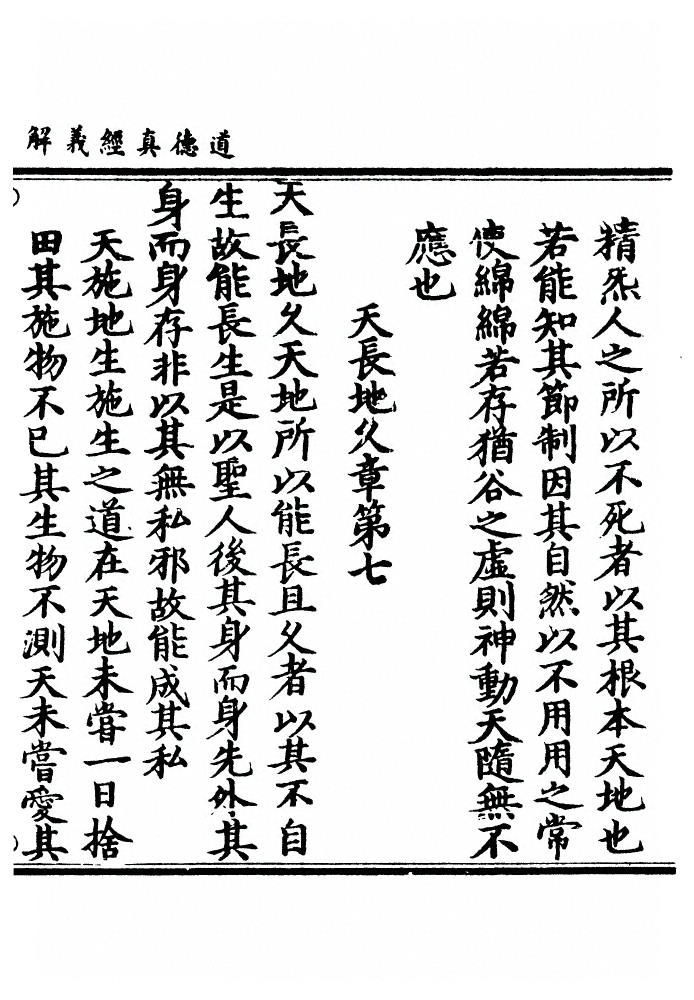 道德真經義解
精炁人之所以不死者以其根本天地也
若能知其節制因其自然以不用用之常
使綿綿若存猶谷之虛則神動天隨無不
應也
天長地久章第七
天長地久天地所以能長且久者以其不自
生故能長生是以聖人後其身而身先外其
身而身存非以其無私邪故能成其私
天施地生施生之道在天地未嘗一日捨
田其施物不已其生物不測天未嘗愛其